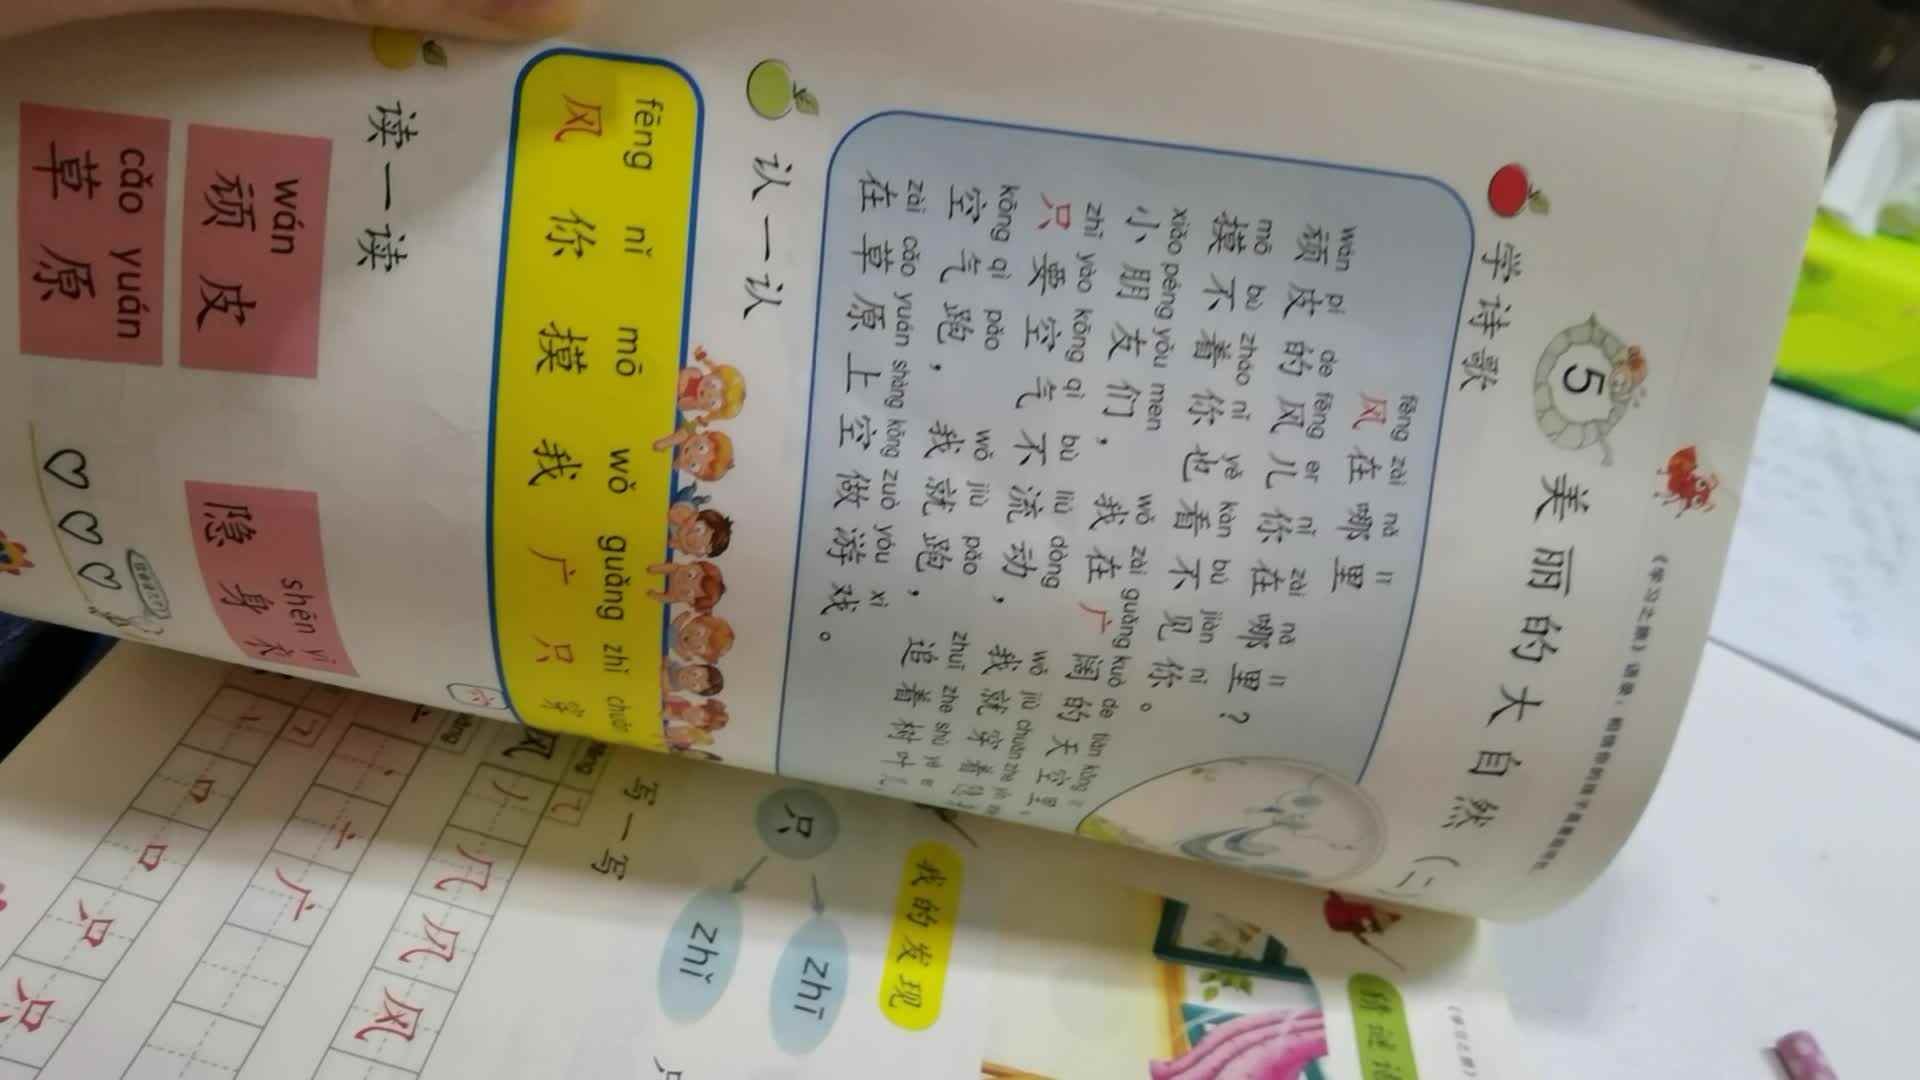 5 美丽的大自然(二)
学诗歌
fēng zài nǎ lǐ
风在哪里
wán pí de fēng er nǐ zài nǎ lǐ
顽皮的风儿你在哪里?
mō bù zháo nǐ yě kàn bù jiàn nǐ
摸不着你也看不见你。
xiǎo péng yǒu men wǒ zài guǎng kuò de tiān kōng lǐ
小朋友们,我在广阔的天空里,
zhǐ yào kōng qì bù liú dòng wǒ jiù chuān zhe
只要空气不流动,我就穿着
kōng qì pǎo wǒ jiù pǎo zhuī zhe shù yè
空气跑,我就跑,追着树叶
zài cǎo yuán shàng kōng zuò yóu xì
在草原上空做游戏。
认一认
fēng nǐ mō wǒ guǎng zhǐ
风 你 摸 我 广 只 穿
读一读
wán
顽皮
shēn yī
隐身衣
cǎo yuán
草原
我的发现
只
zhī
zhǐ
写一写
风
几 风 风
广
口 口 只 只